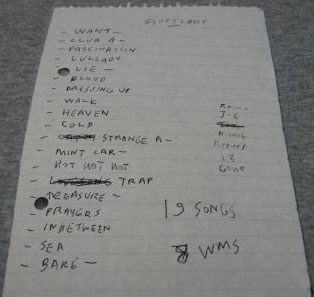 - WANT -
- CLUB A -
- FASCINATION
- LULLABY
- USE -
- BLOOD
- DRESSING UP
- WALK
- HEAVEN
- COLD
- STRANGE A -
- MINT CAR -
- HOT HOT HOT
- TRAP
- TREASURE -
- PRAYERS
- INBETWEEN
- SEA
- BARE -
J-C
13
GONE
19 SONGS
8 WMS